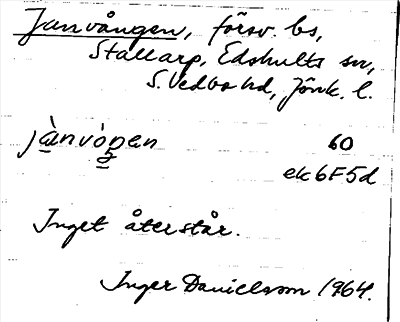 Janvången, försv. bs,
Stallarp, Edshults sn,
S. Vedbo hd, Jönk. l.
jànvòŋen 60
ek6F5d
Inget återstår.
Inger Danielsson 1964.